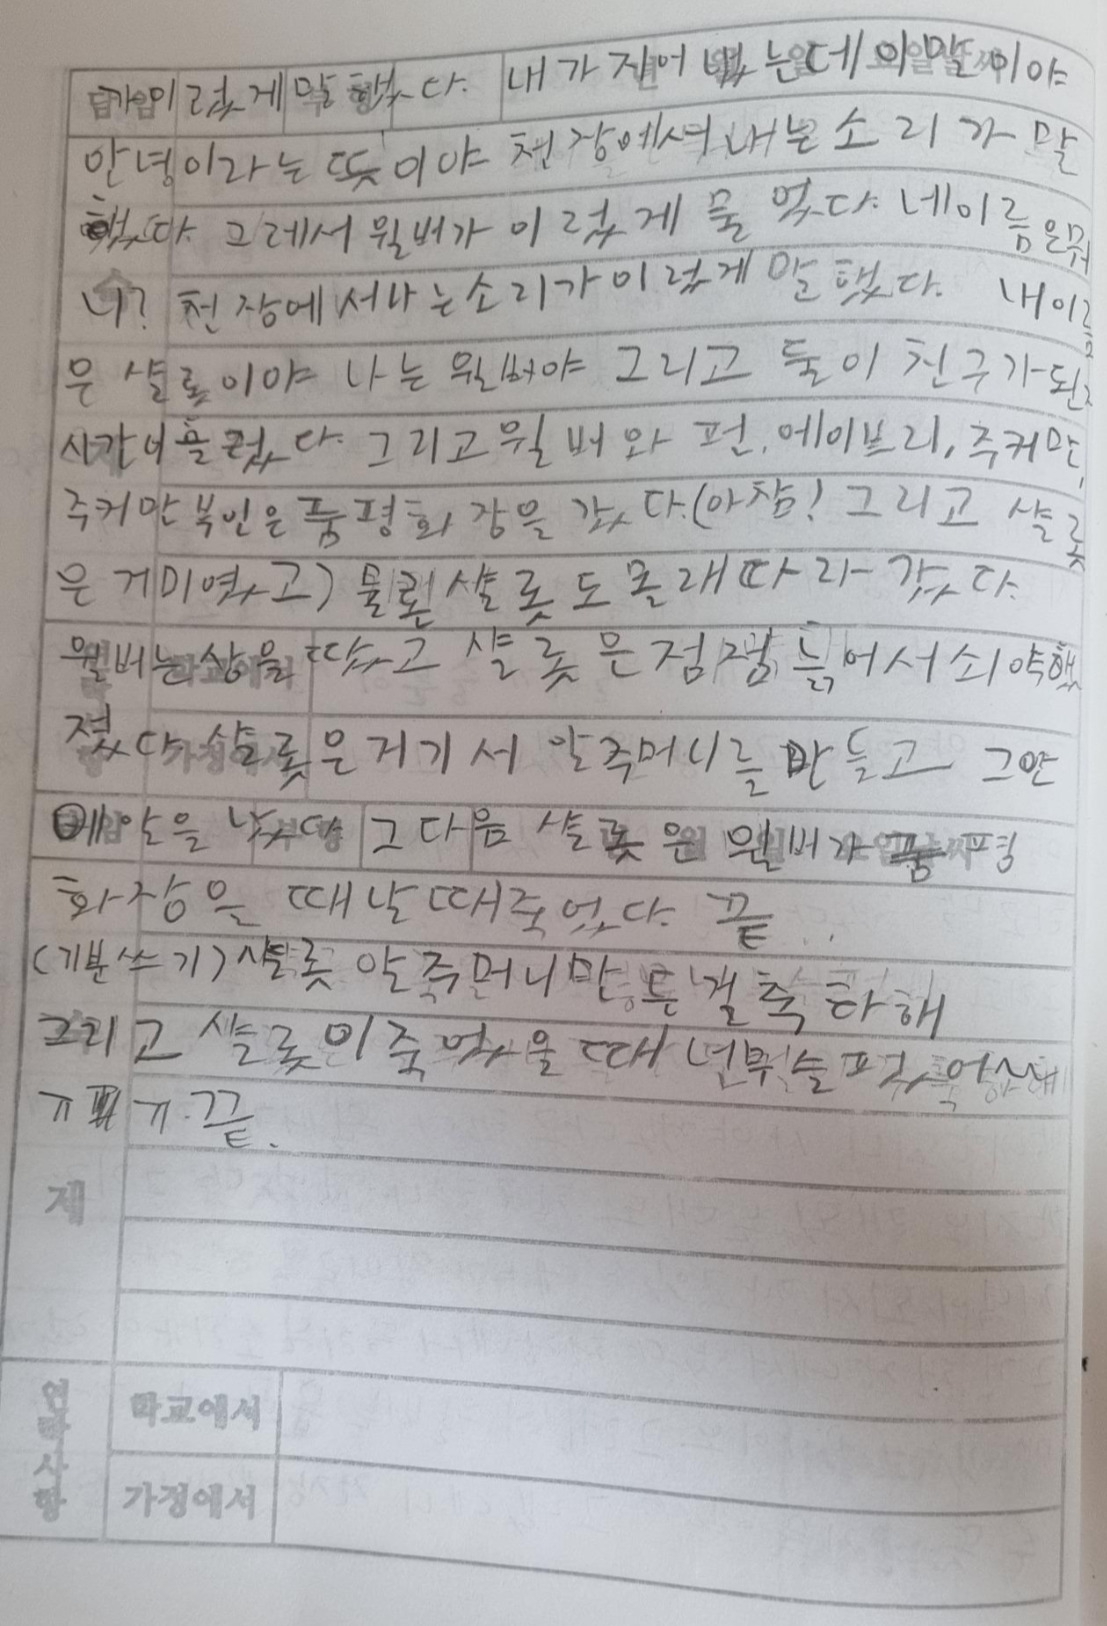 가 이렀게 말했다. 내가 지어 냈는데 이말이야
안녕이라는 뜻이야 천장에서 내는 소리가 말
했다. 그레서 윌버가 이렀게 물었다. 네이름은뭐
니? 천장에서나는소리가이렀게 말했다. 내이름
은 샬롯이야 나는 윌버야 그리고 둘이 친구가된지
시간이흘렀다. 그리고 윌버와 펀, 에이브리, 주커만,
주커만부인은 품평화 장을 갔다.(아참! 그리고 샬롯
은 거미였고) 물론 샬롯도 몰래 따라 갔다.
윌버는상을 땄고 샬롯은 점점 늙어서 쇠약해
졌다 샬롯은거기서 알주머니를 만들고 그안
에알을 낳았다 그다음 샬롯은 윌버가 품평
화장을 때날때죽었다. 끝
(기분쓰기) 샬롯 알주머니만든걸축하해
그리고 샬롯이죽었을때 넌무슬펐어
ㅠㅠㅠ.끝.
제
연락사항
학교에서
가정에서